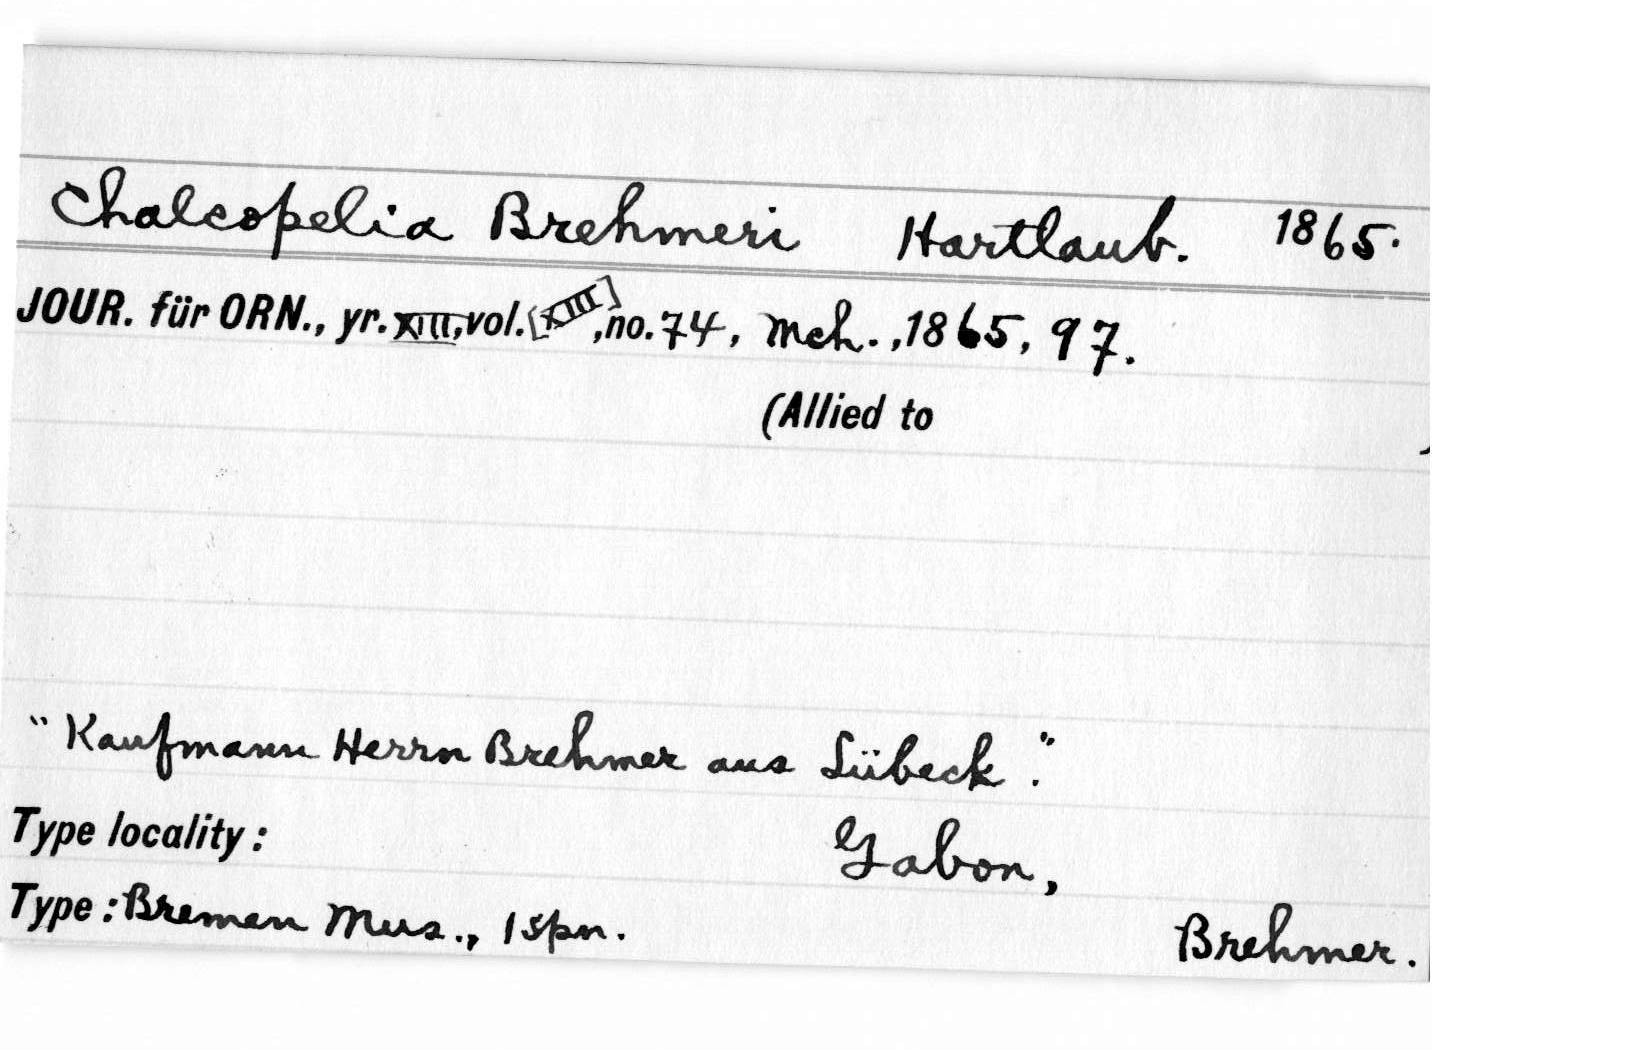 Chalcopelia Brehmeri Hartlaub. 1865.
JOUR. für ORN., yr. XIII, vol. [XIII], no. 74, Mch., 1865, 97.
(Allied to )
"Kaufmann Herrn Brehmer aus Lübeck."
Type locality: Gabon,
Type: Bremen Mus., 1 spn. Brehmer.